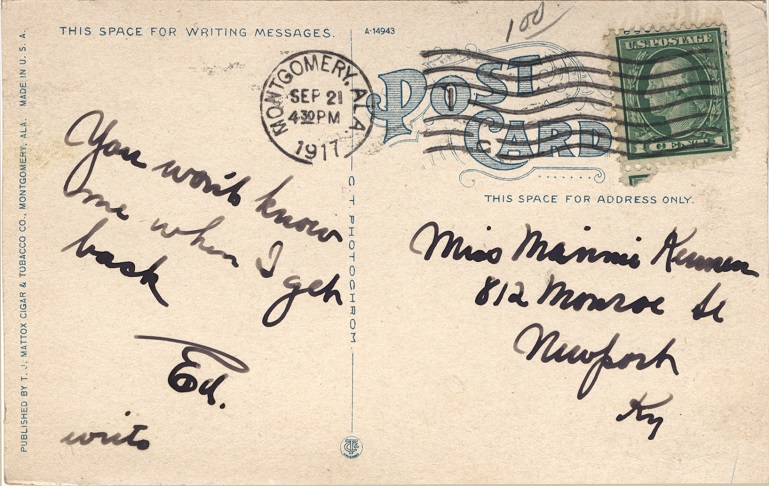 THIS SPACE FOR WRITING MESSAGES.
A-14943
1 00
MONTGOMERY, ALA.
SEP 21
4 30 PM
1917
POST
CARD
U.S. POSTAGE
1 CENT 1
THIS SPACE FOR ADDRESS ONLY.
You won't know
me when I get
back
Ed.
write
Miss Mannie
812 Monroe St
Newport
Ky
C T PHOTOCHROM
PUBLISHED BY T. J. MATTOX CIGAR & TOBACCO CO., MONTGOMERY, ALA. MADE IN U. S. A.